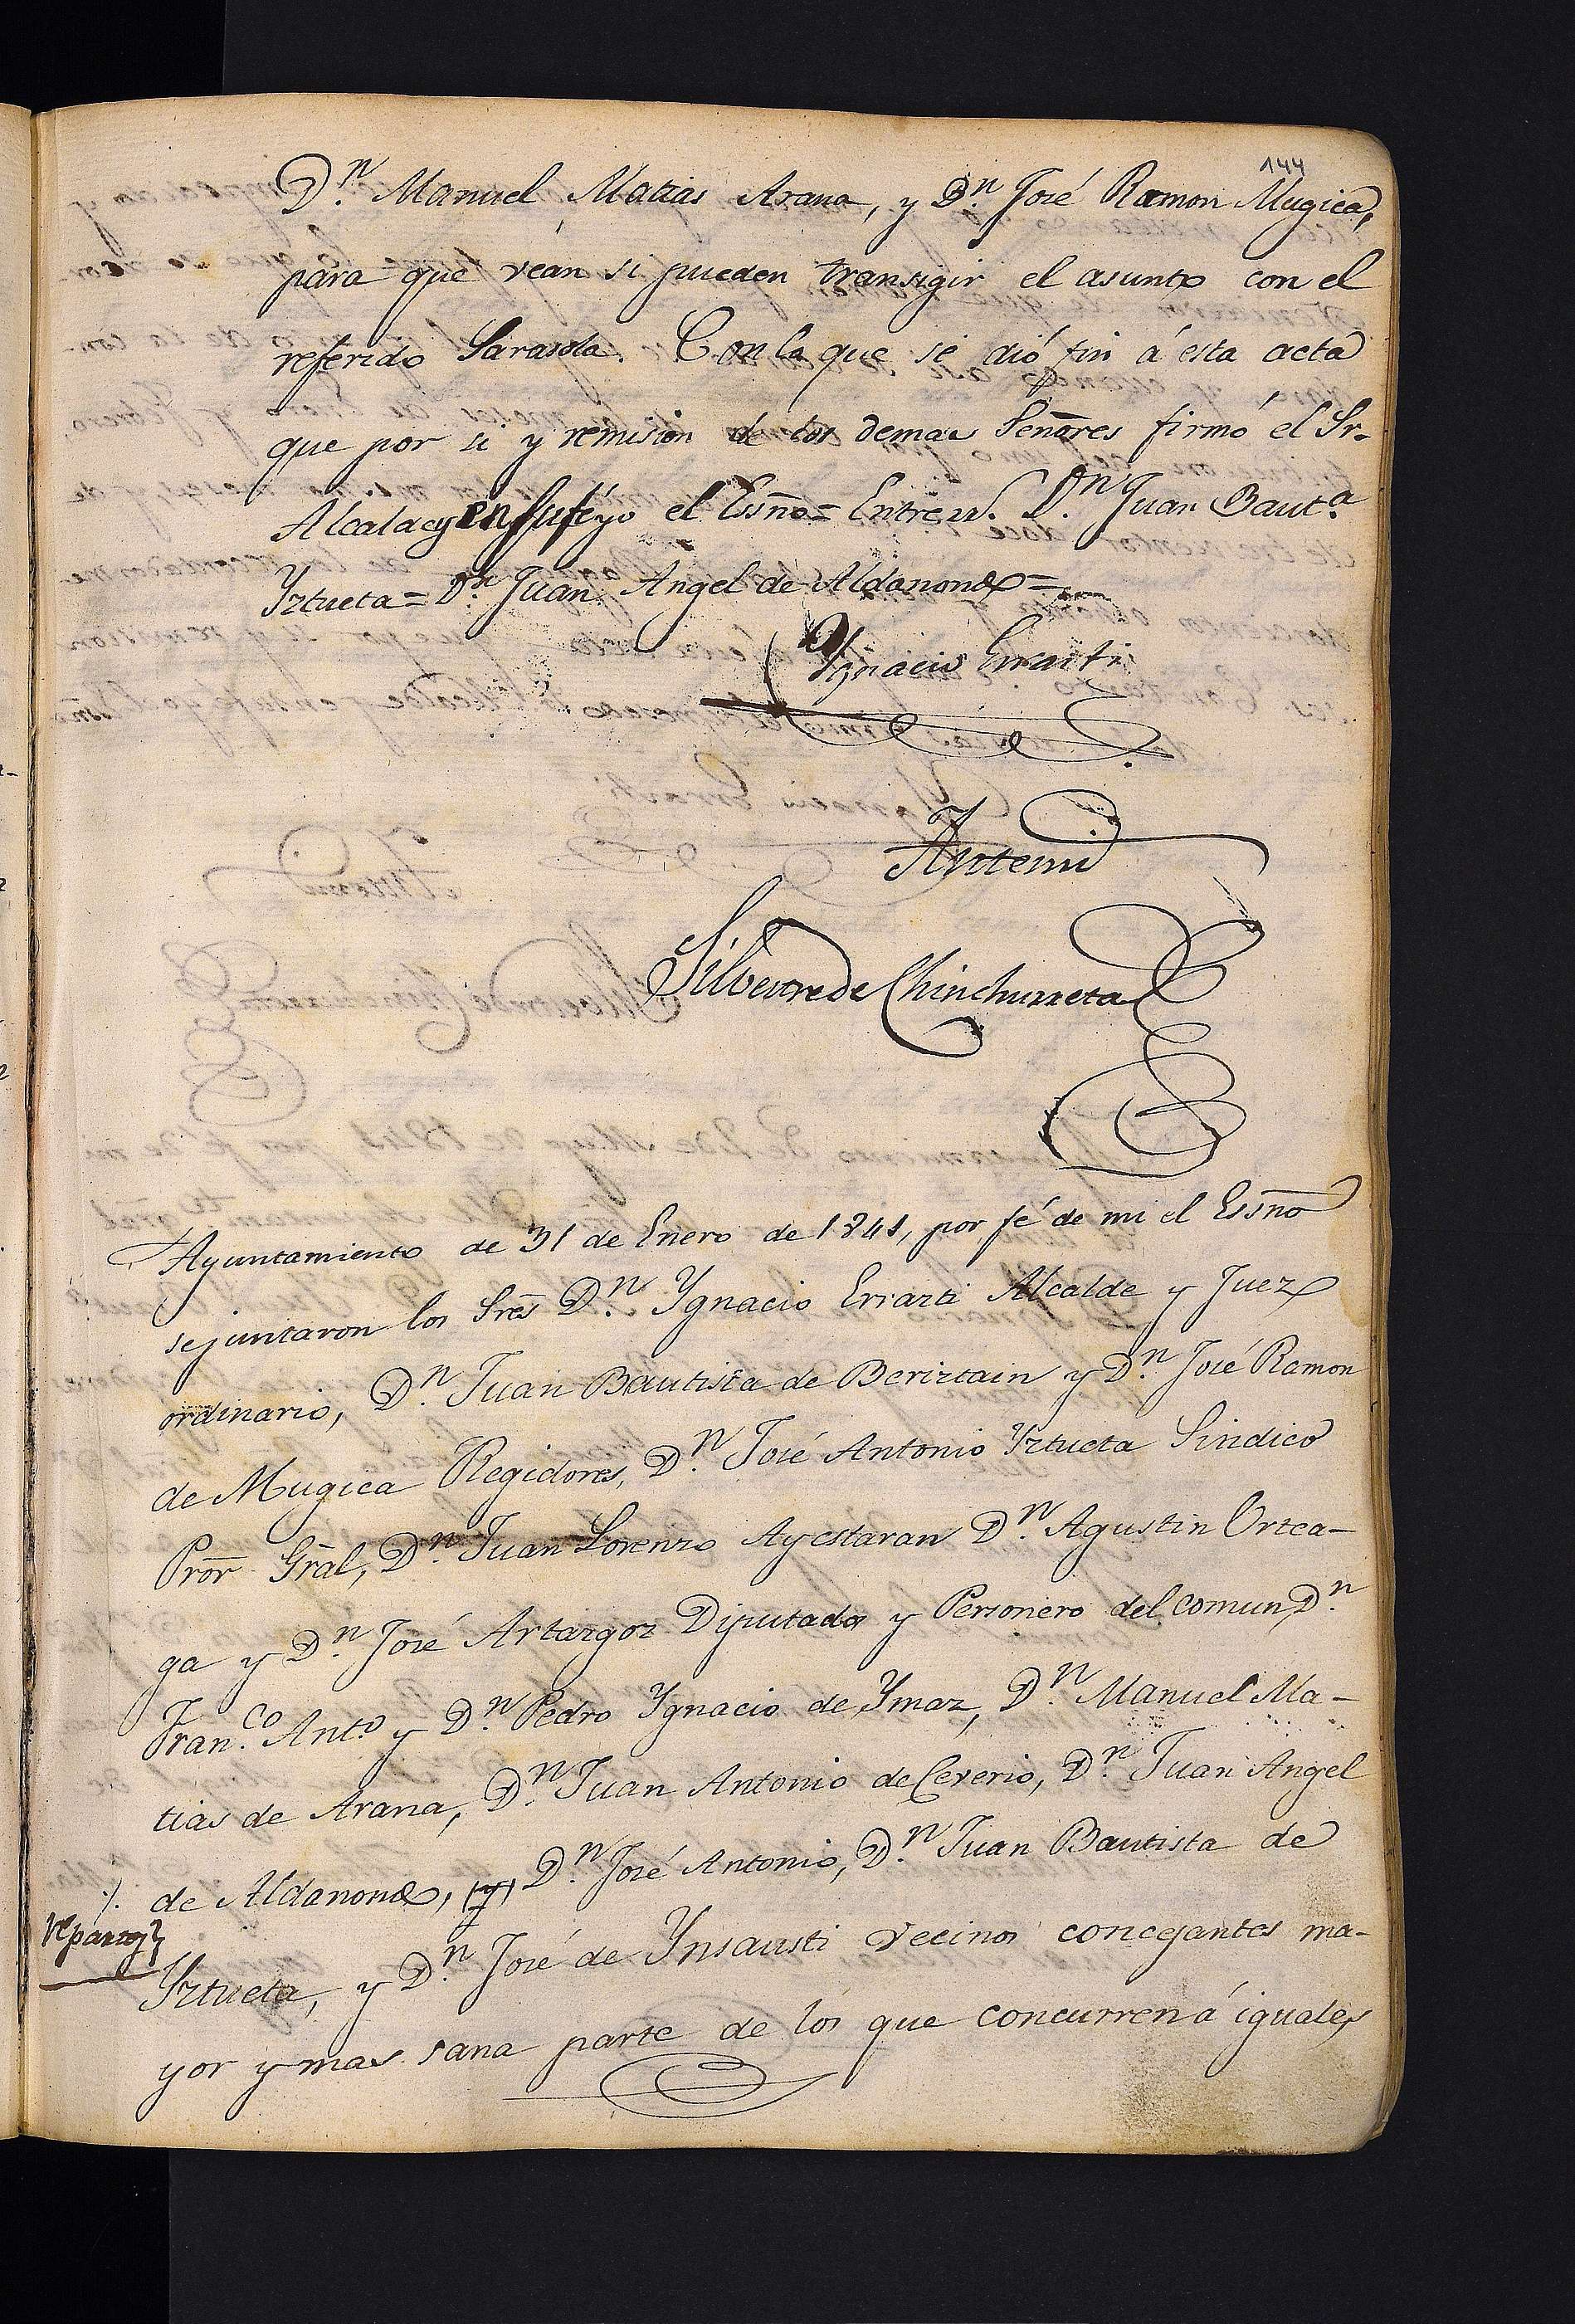 144
D.n Manuel Matias Arana, y D.n José Ramon Mugica,
para que vean si pueden transigir el asunto con el
referido Sarasola. Con la que se dió fin á esta acta
que por si y remision de los demas Señores firmó el Sr.
Alcalde y en su fé yo el Essño = Entre rr. D.n Juan Baut.a
Yztueta = D.n Juan Angel de Aldanondo =
Ygnacio Errasti
Antemi
Silvestre de Chinchurreta
Ayuntamiento de 31 de Enero de 1841, por fé de mi el Essño
se juntaron los Sres D.n Ygnacio Errazti Alcalde y Juez
ordinario, D.n Juan Bautista de Beriztain y D.n José Ramon
de Mugica Regidores, D.n José Antonio Yztueta Sindico
Pror Gral, D.n Juan Lorenzo Ayestaran D.n Agustin Ortea-
ga y D.n José Artazgoz Diputados y Personero del comun, D.n
Fran.co Ant.o y D.n Pedro Ygnacio de Ymaz, D.n Manuel Ma-
tias de Arana, D.n Juan Antonio de Ceverio, D.n Juan Angel
de Aldanondo, (y) D.n José Antonio, D.n Juan Bautista de
Yztueta, y D.n José de Ynsausti vecinos concejantes ma-
yor y mas sana parte de los que concurren á iguales